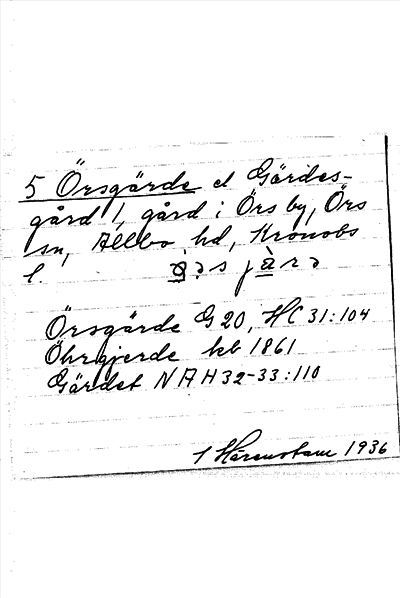 5 Örsgärde el Gärdes-
gård 1, gård i Örs by, Örs
sn, Allbo hd, Kronobs
l.
Örsgärde G 20, HC 31:104
Öhrgjerde kb 1861
Gärdet NAH 32-33:110
1936